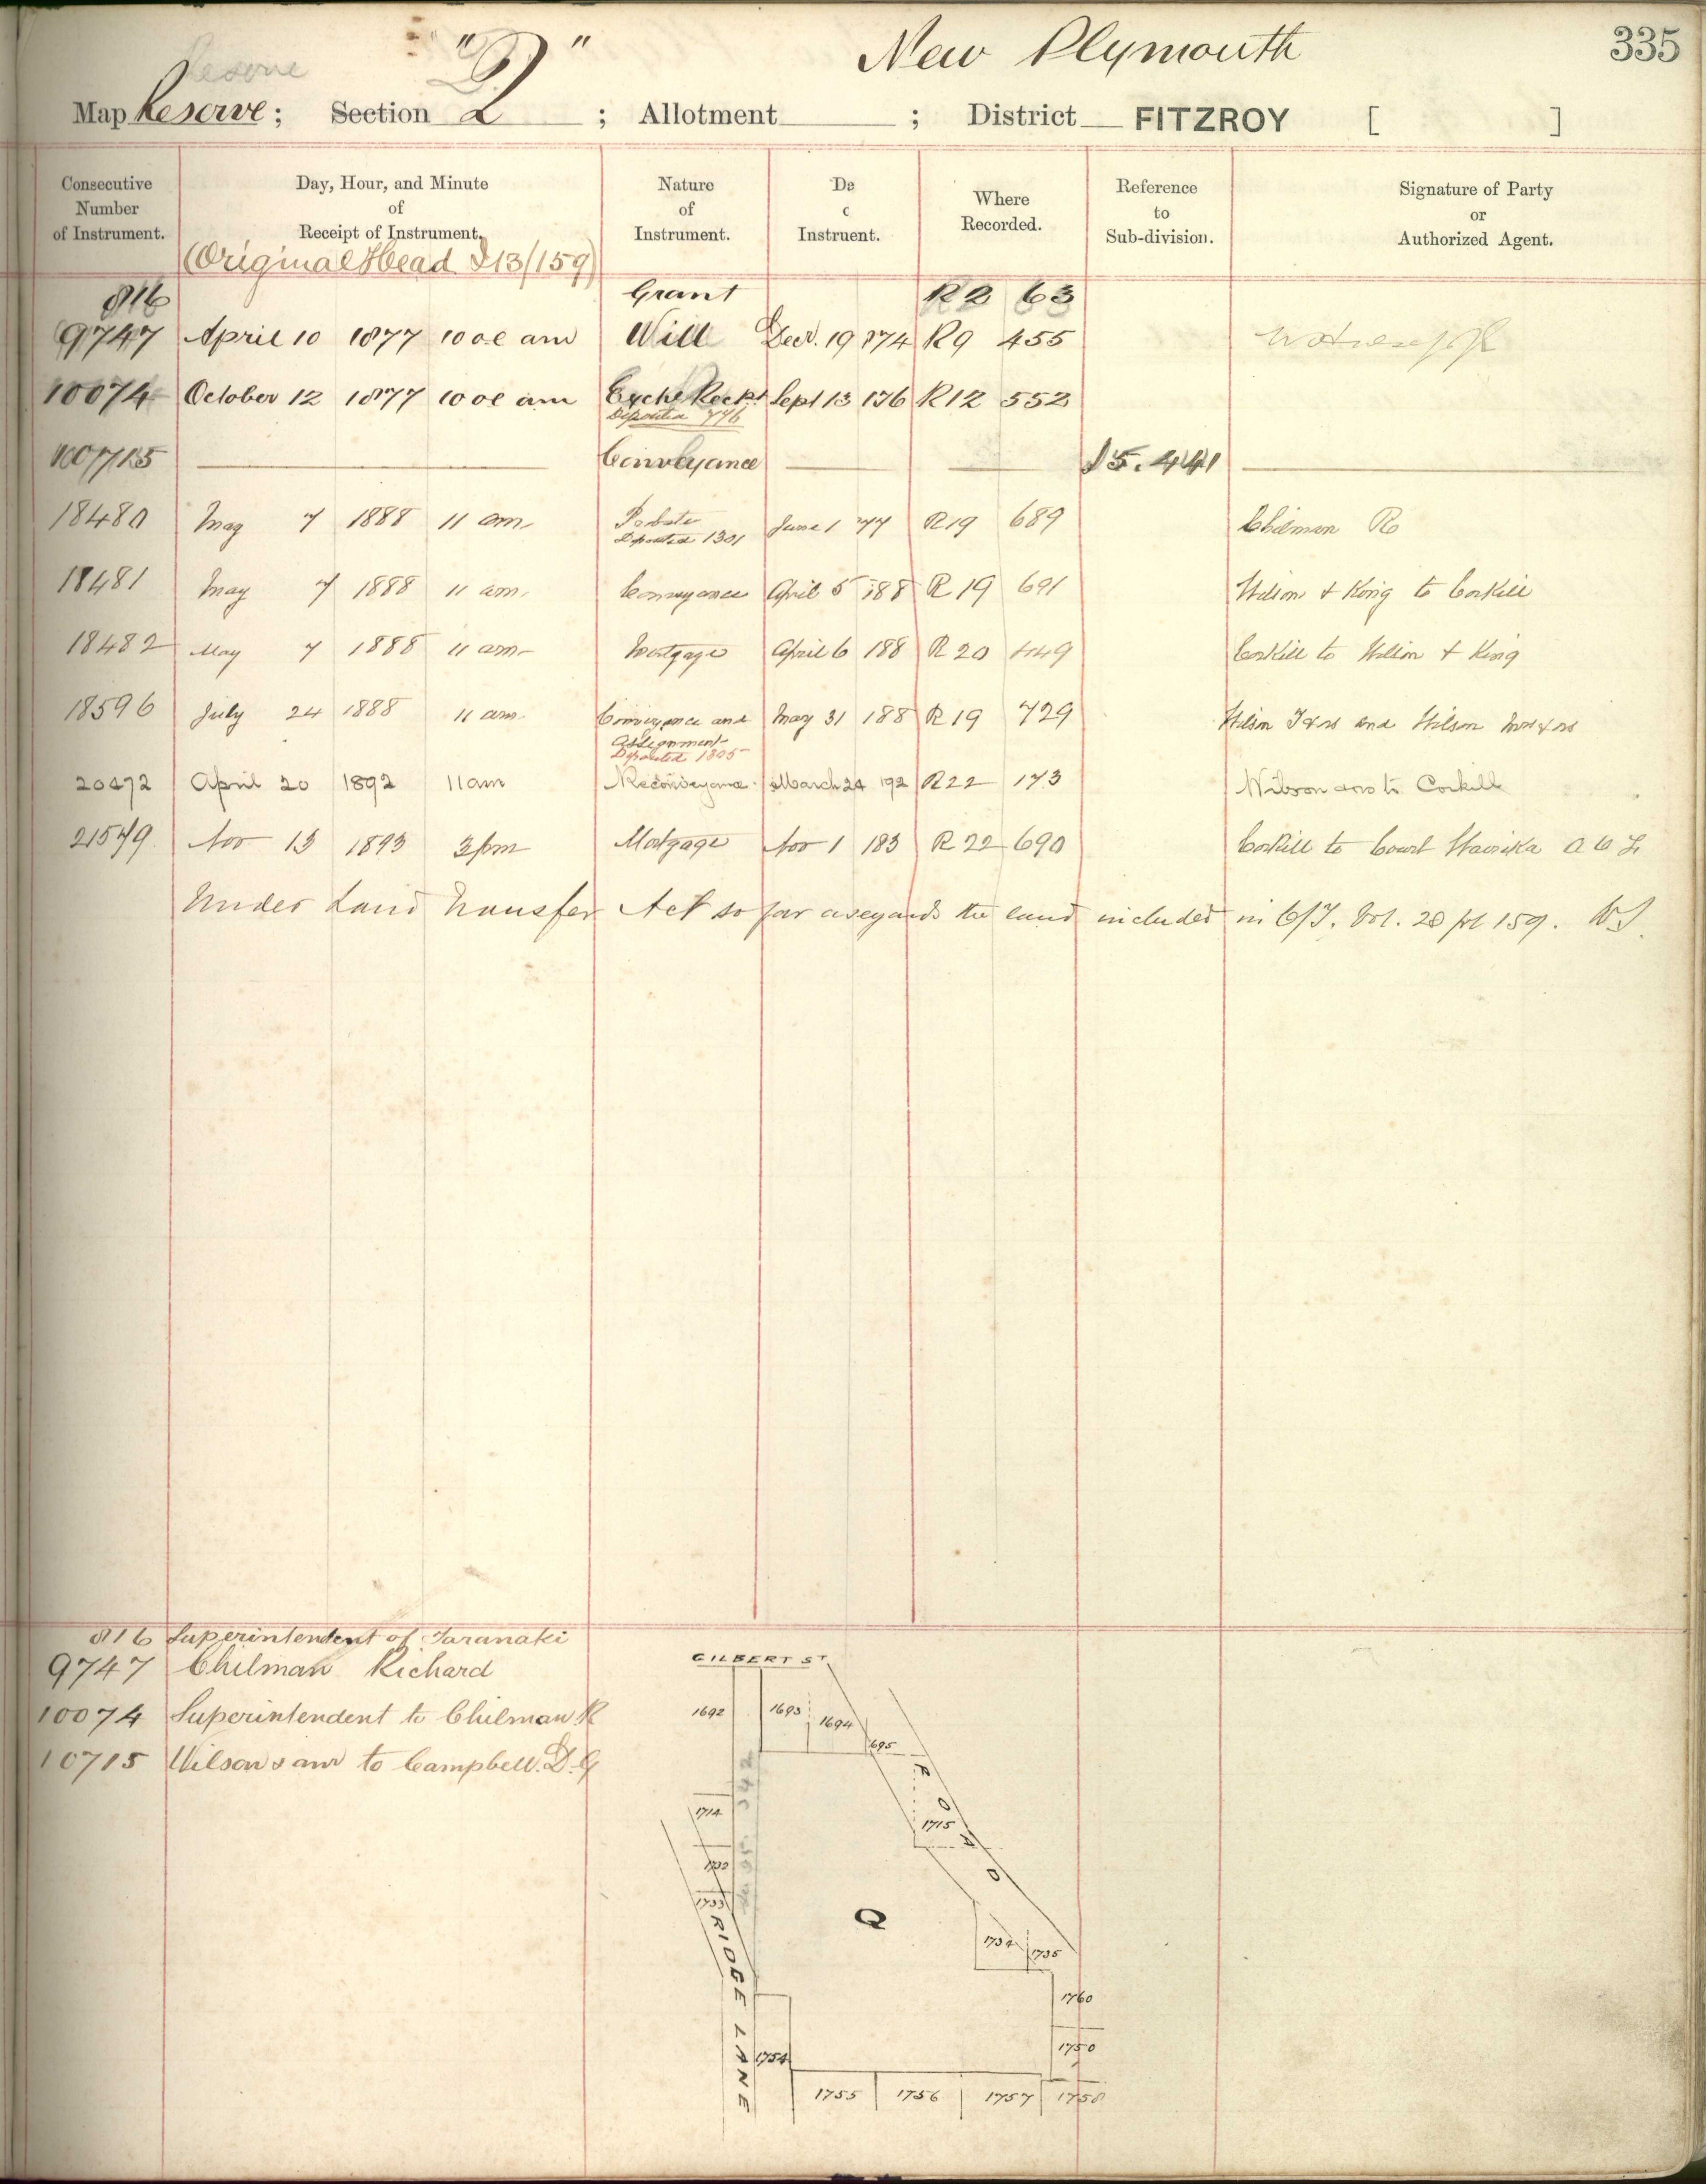 Reserve "Q" New Plymouth 335
Map Reserve; Section Q ; Allotment ; District FITZROY [ ]
Consecutive Number of Instrument.
Day, Hour, and Minute of Receipt of Instrument.
Nature of Instrument.
Da e Instruent.
Where Recorded.
Reference to Sub-division.
Signature of Party or Authorized Agent.
(Original Head I13/159)
816 Grant R2 63
9747 April 10 1877 10 oc am Will Decr. 19 174 R9 455
10074 October 12 1877 10 oc am Exche Rect Sept 13 176 R12 552
Deposited 776
10715 Conveyance I5. 441
18480 May 7 1888 11 am. Probate June 1 77 R19 689 Chilman R
Deposited 1301
18481 May 7 1888 11 am. Conveyance April 5 188 R 19 691 Wilson & King to Corkill
18482 May 7 1888 11 am. Mortgage April 6 188 R 20 449 Corkill to Wilson & King
18596 July 24 1888 11 am. Conveyance and May 31 188 R 19 729 and Wilson
Assignment
Deposited 1305
20472 April 20 1892 11am Reconveyance March 24 192 R22 173 Wilson anor to Corkill
21579 Nov 13 1893 3pm Mortgage Nov 1 183 R 22 690 Corkill to Court Hairika A O F
Under Land Transfer Act so far as regards the land included in C/T. Vol. 20 fol 159.
816 Superintendent of Taranaki
9747 Chilman Richard
10074 Superintendent to Chilman R
10715 Wilson & anr to Campbell. D. G
GILBERT ST
1692 1693 1694 1695
1714
1715
ROAD
Q
1734 1735
BRIDGE LANE
1760
1754
1755 1756 1757 1758